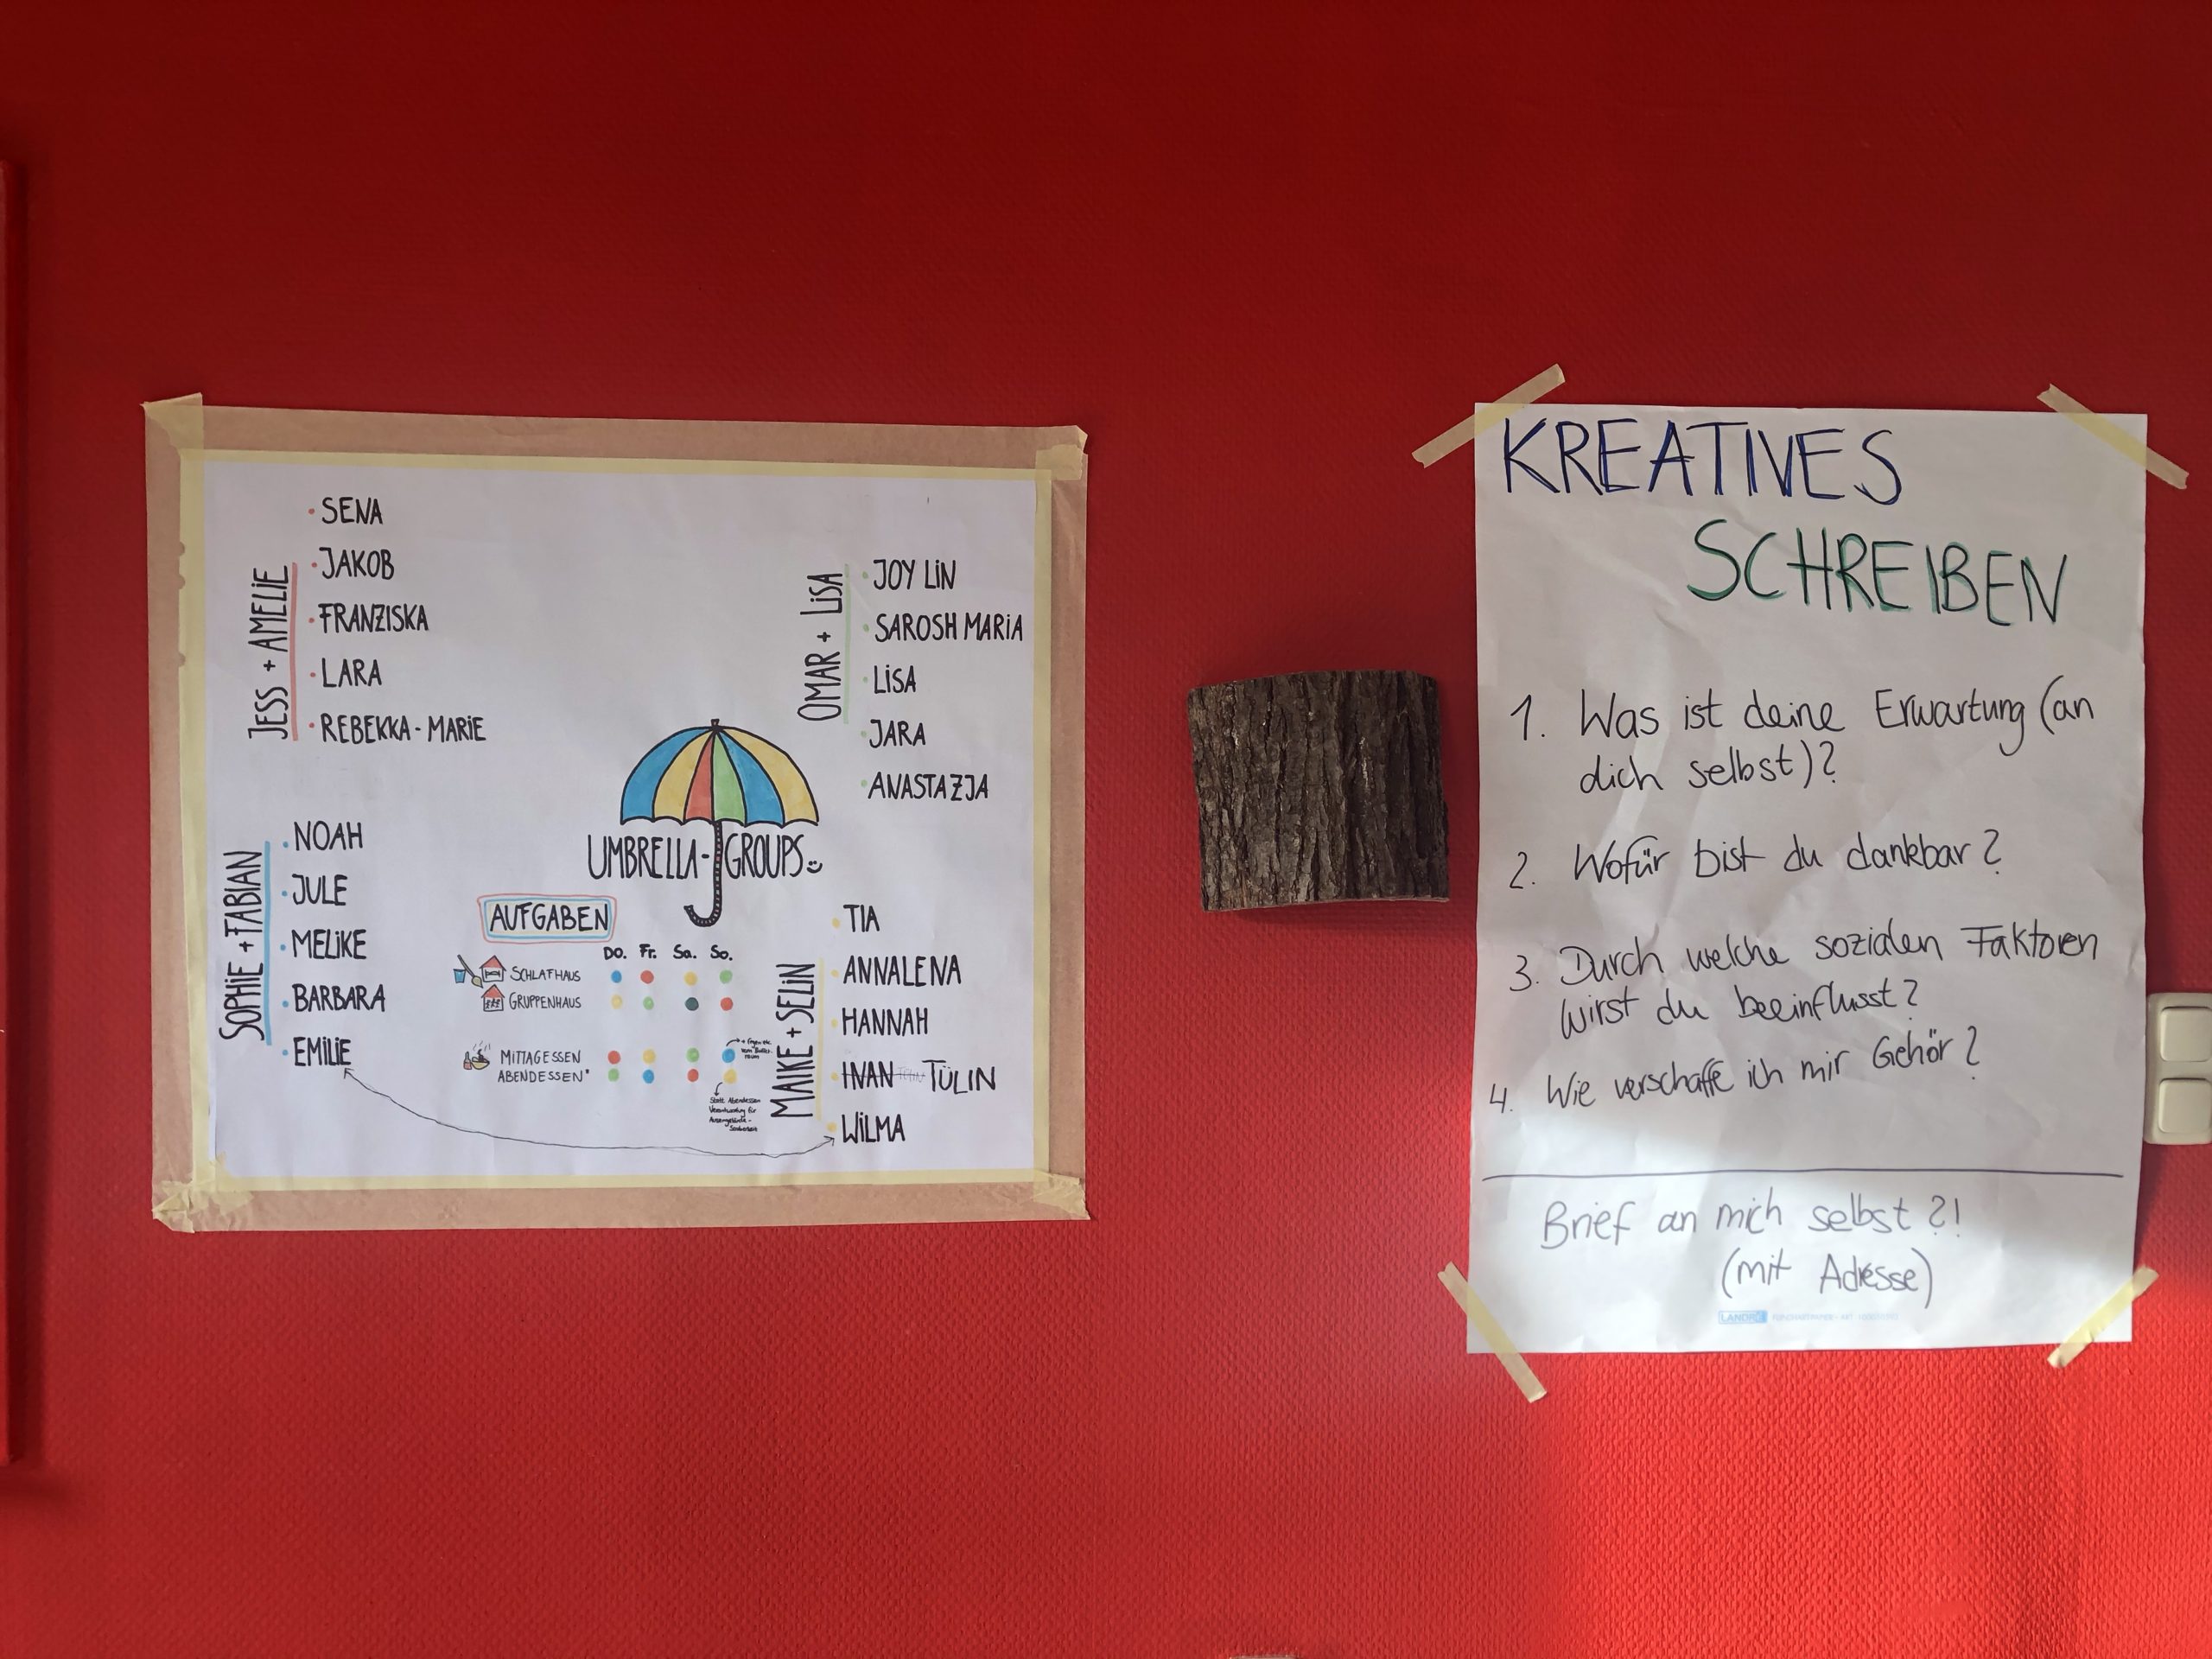 JESS + AMELIE
SENA
JAKOB
FRANZISKA
LARA
REBEKKA-MARIE
OMAR + LISA
JOY LIN
SAROSH MARIA
LISA
JARA
ANASTAZJA
UMBRELLA-GROUPS
SOPHIE + FABIAN
NOAH
JULE
MELIKE
BARBARA
EMILIE
AUFGABEN
Do. Fr. Sa. So.
SCHLAFHAUS
GRUPPENHAUS
MITTAGESSEN
ABENDESSEN*
Statt Abendessen
Verantwortung für
MAIKE + SELIN
TIA
ANNALENA
HANNAH
IVAN TÜLIN
WILMA
KREATIVES
SCHREIBEN
1. Was ist deine Erwartung (an
dich selbst)?
2. Wofür bist du dankbar?
3. Durch welche sozialen Faktoren
wirst du beeinflusst?
4. Wie verschaffe ich mir Gehör?
Brief an mich selbst?!
(mit Adresse)
LANDRÉ